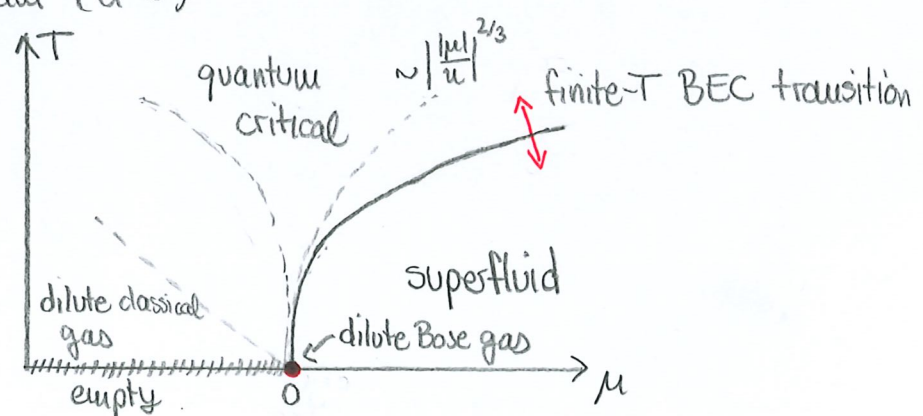 T
quantum
critical
~|\frac{|μ|}{u}|^{2/3}
finite-T BEC transition
superfluid
dilute classical
gas
dilute Bose gas
empty
0
μ